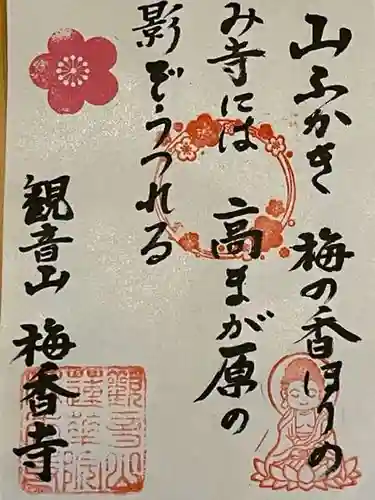 山ふかき 梅の香ほりの
み寺には 高まが原の
影ぞうつれる
観音山 梅香寺